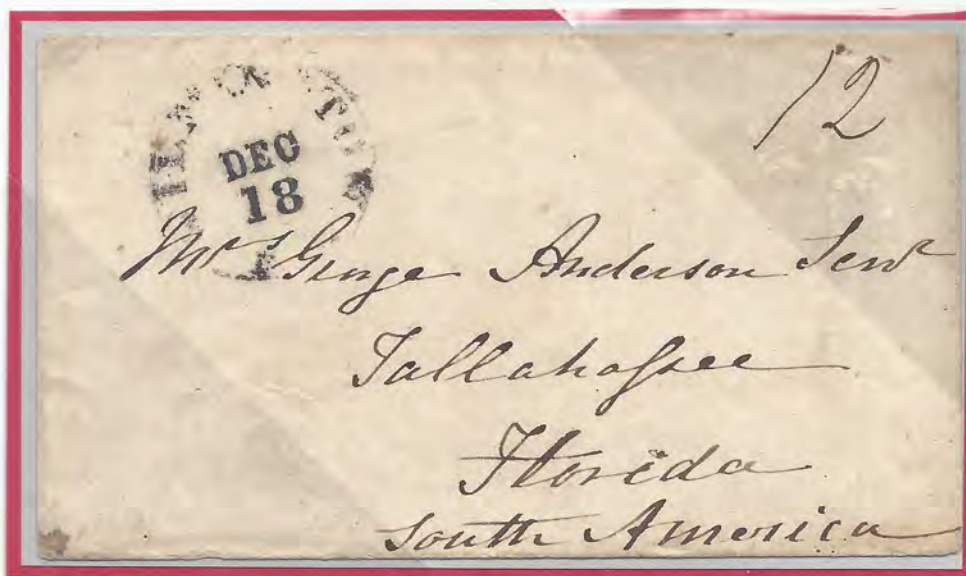 12
DEC
18
Mrs George Anderson Senr
Tallahassee
Florida
South America